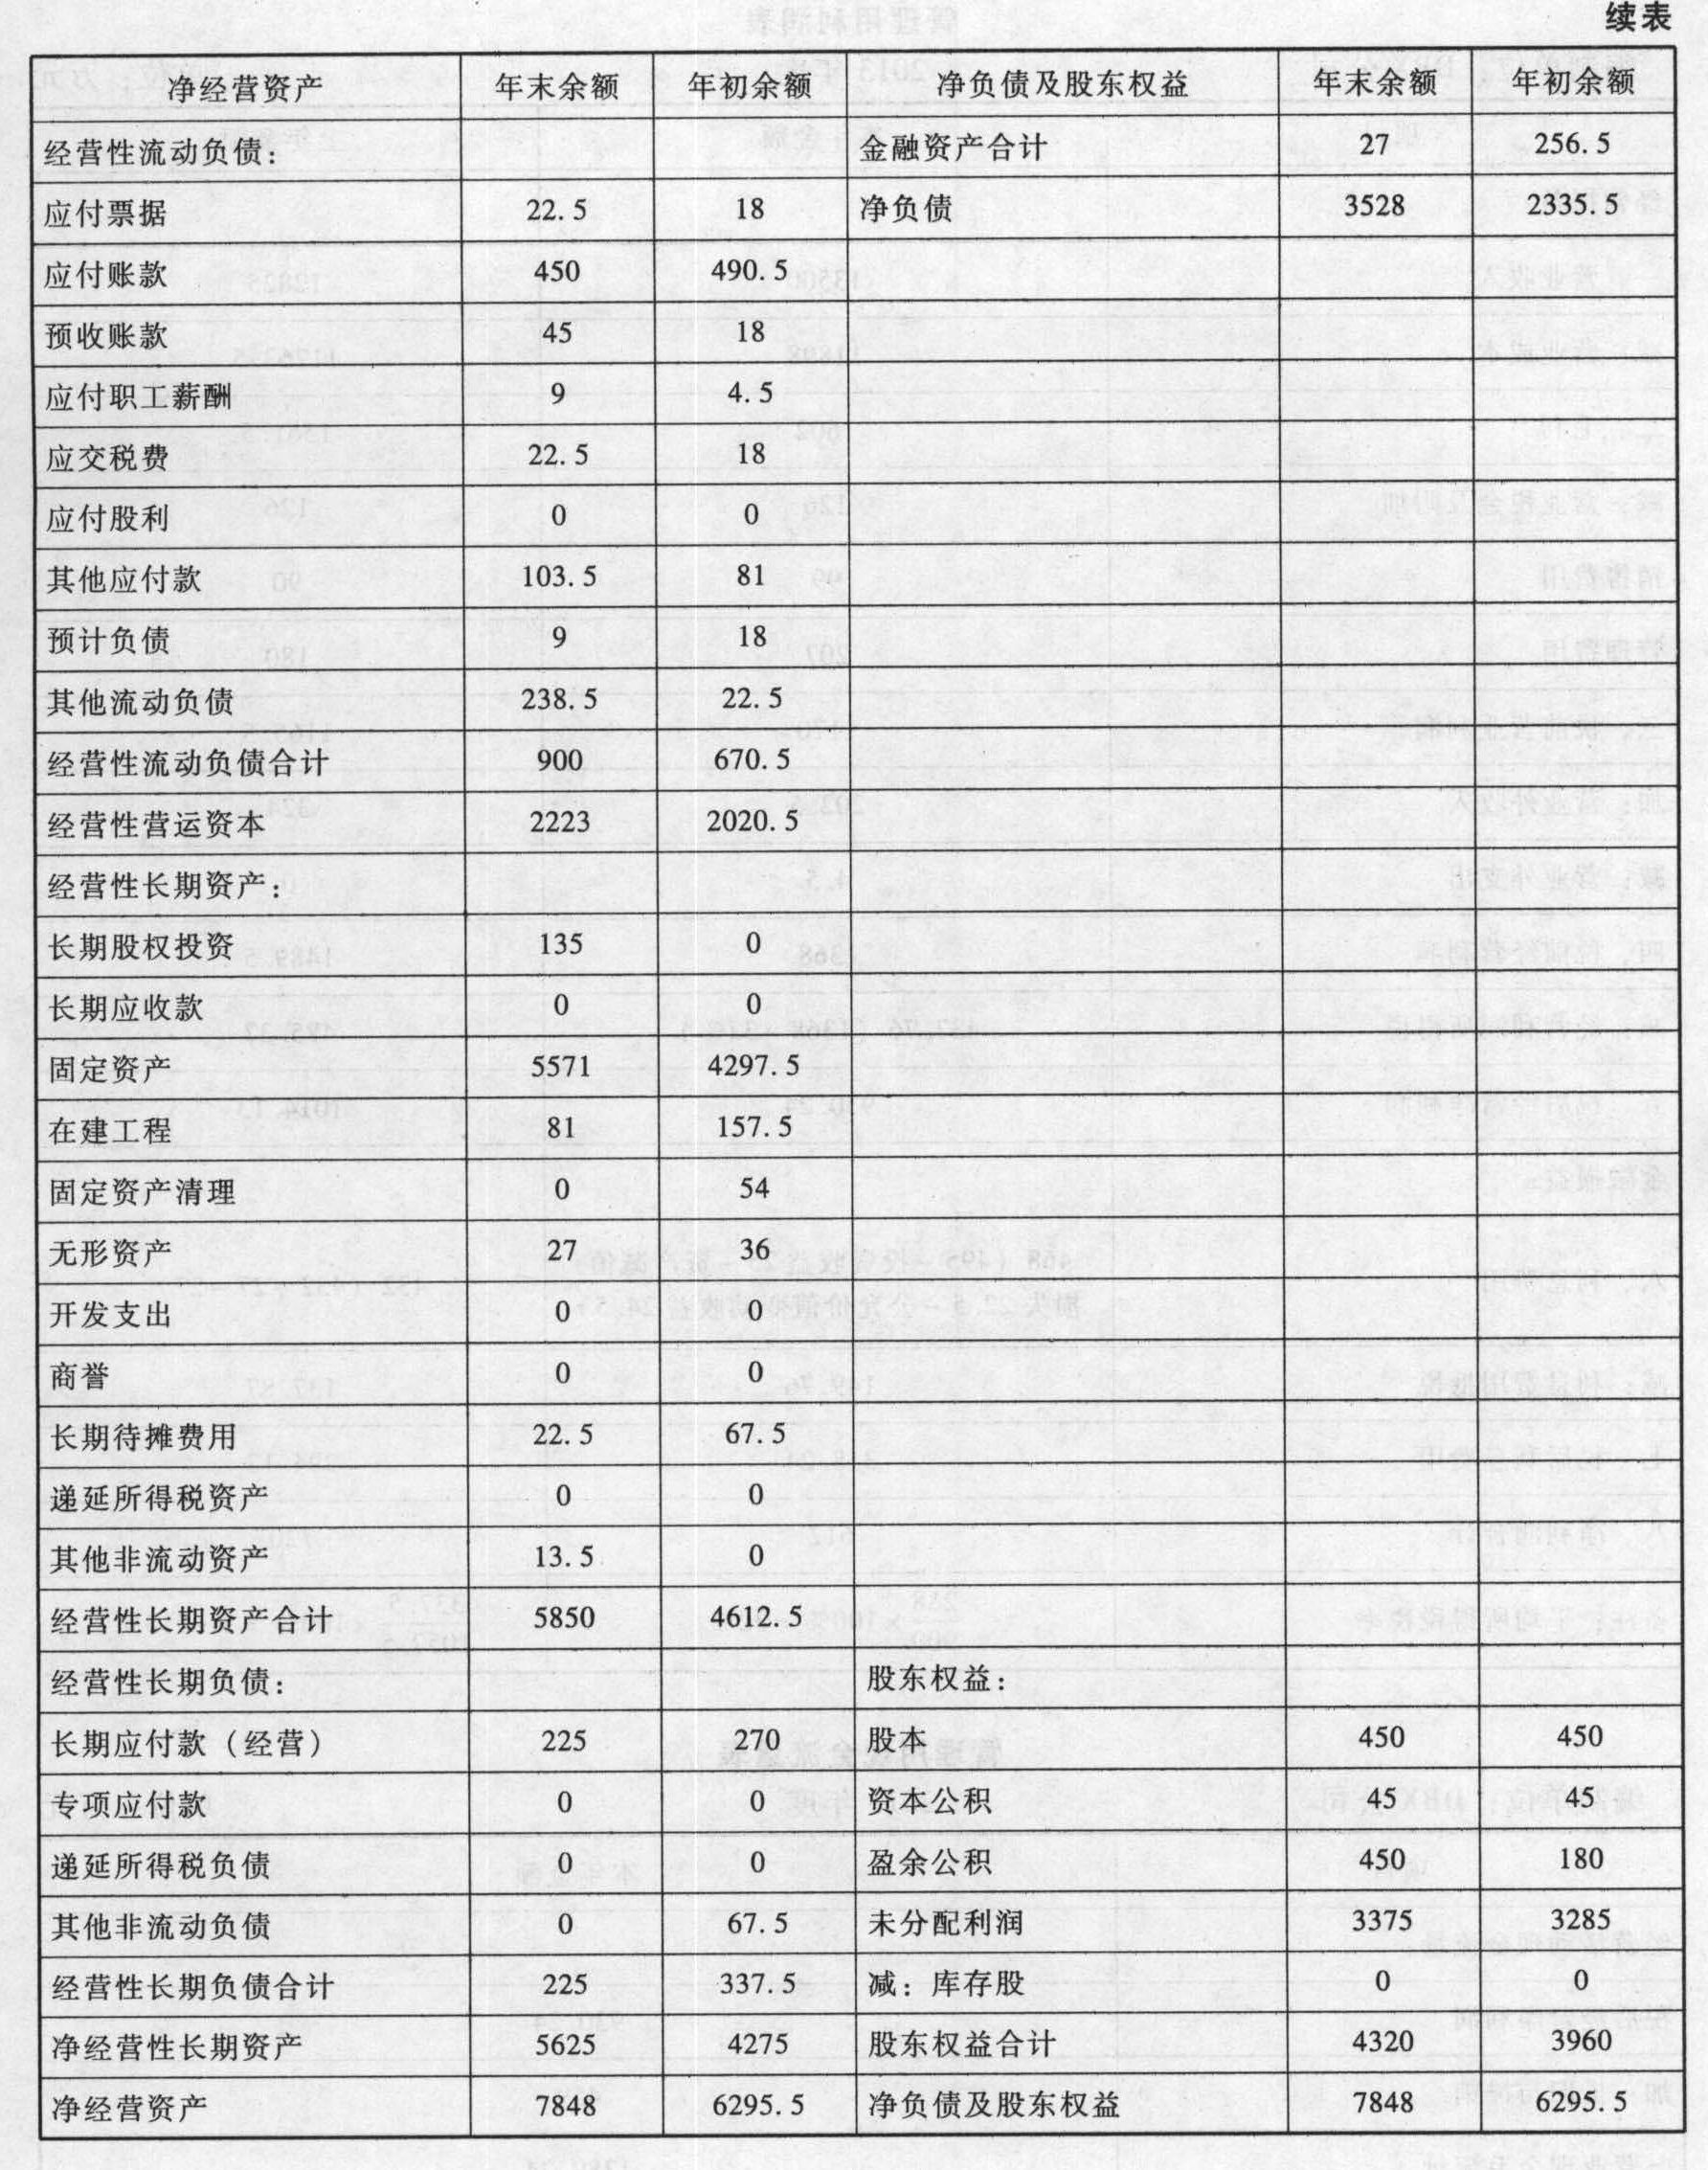 续表
净经营资产 年末余额 年初余额 净负债及股东权益 年末余额 年初余额
经营性流动负债： 金融资产合计 27 256.5
应付票据 22.5 18 净负债 3528 2335.5
应付账款 450 490.5
预收账款 45 18
应付职工薪酬 9 4.5
应交税费 22.5 18
应付股利 0 0
其他应付款 103.5 81
预计负债 9 18
其他流动负债 238.5 22.5
经营性流动负债合计 900 670.5
经营性营运资本 2223 2020.5
经营性长期资产：
长期股权投资 135 0
长期应收款 0 0
固定资产 5571 4297.5
在建工程 81 157.5
固定资产清理 0 54
无形资产 27 36
开发支出 0 0
商誉 0 0
长期待摊费用 22.5 67.5
递延所得税资产 0 0
其他非流动资产 13.5 0
经营性长期资产合计 5850 4612.5
经营性长期负债： 股东权益：
长期应付款（经营） 225 270 股本 450 450
专项应付款 0 0 资本公积 45 45
递延所得税负债 0 0 盈余公积 450 180
其他非流动负债 0 67.5 未分配利润 3375 3285
经营性长期负债合计 225 337.5 减：库存股 0 0
净经营性长期资产 5625 4275 股东权益合计 4320 3960
净经营资产 7848 6295.5 净负债及股东权益 7848 6295.5